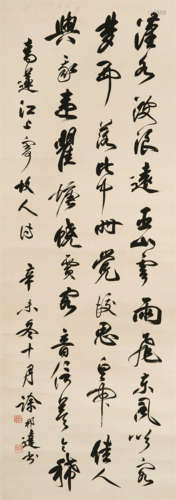 漢水波浪遠巫山雲雨飛東風吹客
夢西落此中時覺後思白帝佳人
與我違瞿塘饒賈客音信莫令稀
青蓮江上寄故人詩 辛未冬十月 徐邦達書